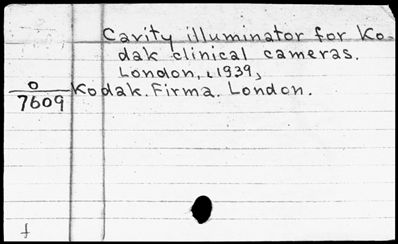 Cavity illuminator for Ko-
dak clinical cameras.
London, [1939]
O
7609
Kodak. Firma. London.
f